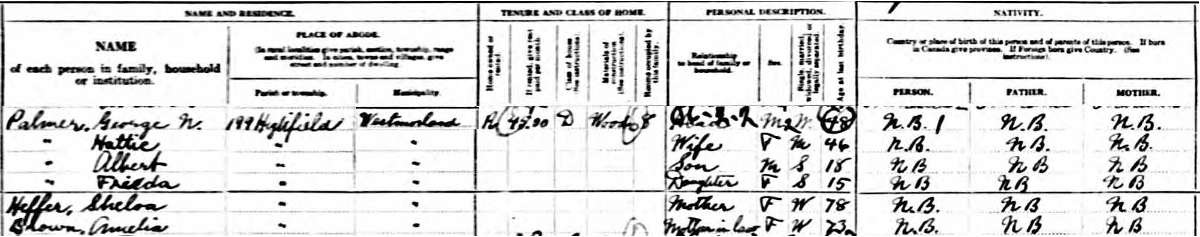 NAME AND RESIDENCE. TENURE AND CLASS OF HOME. PERSONAL DESCRIPTION. NATIVITY.
NAME
of each person in family, household
or institution.
PLACE OF ABODE.
(In rural localities give parish, section, township, range
and meridian. In cities, towns and villages, give
street and number of dwelling.)
Parish or township. Municipality.
Home owned or
rented.
If rented, give rent
paid per month.
Class of house
(See instructions).
Materials of
construction
(See instructions).
Rooms occupied by
this family.
Relationship
to head of family or
household.
Sex.
Single, married,
widowed, divorced or
legally separated.
Age at last birthday.
Country or place of birth of this person and of parents of this person. If born
in Canada give province. If Foreign born give Country. (See
instructions).
PERSON. FATHER. MOTHER.
Palmer, George N. 199 Highfield Westmorland R 45.00 D Wood 8 M 48 N.B. 1 N.B. N.B.
" Hattie " " Wife F M 46 N.B. N B. N.B.
" Albert " " Son M S 18 N B N B N B
" Frieda " " Daughter F S 15 N B N B N B
Heffer, Mother F W 78 N.B. N B. N B.
Brown, Amelia Mother in law F W 73 N.B. N B N B